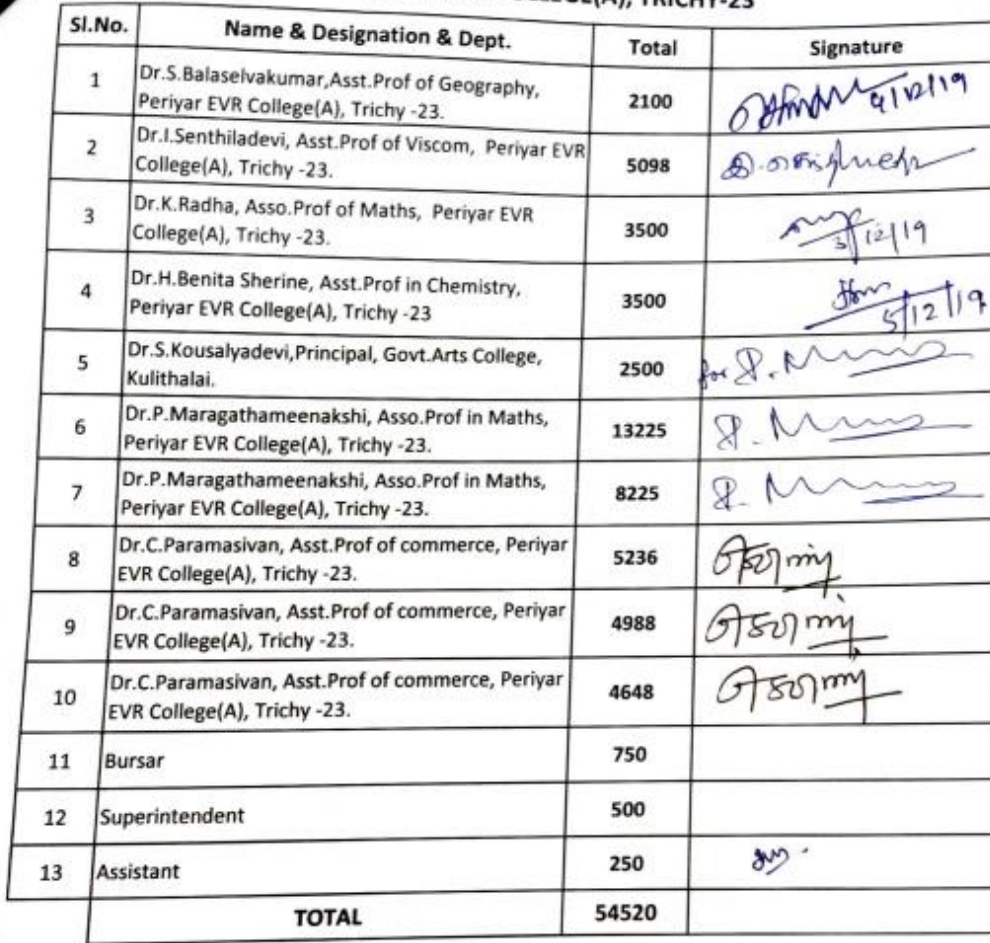 COLLEGE(A), TRICHY-23
Sl.No. Name & Designation & Dept. Total Signature
1 Dr.S.Balaselvakumar,Asst.Prof of Geography,
Periyar EVR College(A), Trichy -23. 2100 4/12/19
2 Dr.I.Senthiladevi, Asst.Prof of Viscom, Periyar EVR
College(A), Trichy -23. 5098
3 Dr.K.Radha, Asso.Prof of Maths, Periyar EVR
College(A), Trichy -23. 3500 3/12/19
4 Dr.H.Benita Sherine, Asst.Prof in Chemistry,
Periyar EVR College(A), Trichy -23 3500 5/12/19
5 Dr.S.Kousalyadevi,Principal, Govt.Arts College,
Kulithalai. 2500 for
6 Dr.P.Maragathameenakshi, Asso.Prof in Maths,
Periyar EVR College(A), Trichy -23. 13225
7 Dr.P.Maragathameenakshi, Asso.Prof in Maths,
Periyar EVR College(A), Trichy -23. 8225
8 Dr.C.Paramasivan, Asst.Prof of commerce, Periyar
EVR College(A), Trichy -23. 5236
9 Dr.C.Paramasivan, Asst.Prof of commerce, Periyar
EVR College(A), Trichy -23. 4988
10 Dr.C.Paramasivan, Asst.Prof of commerce, Periyar
EVR College(A), Trichy -23. 4648
11 Bursar 750
12 Superintendent 500
13 Assistant 250
TOTAL 54520